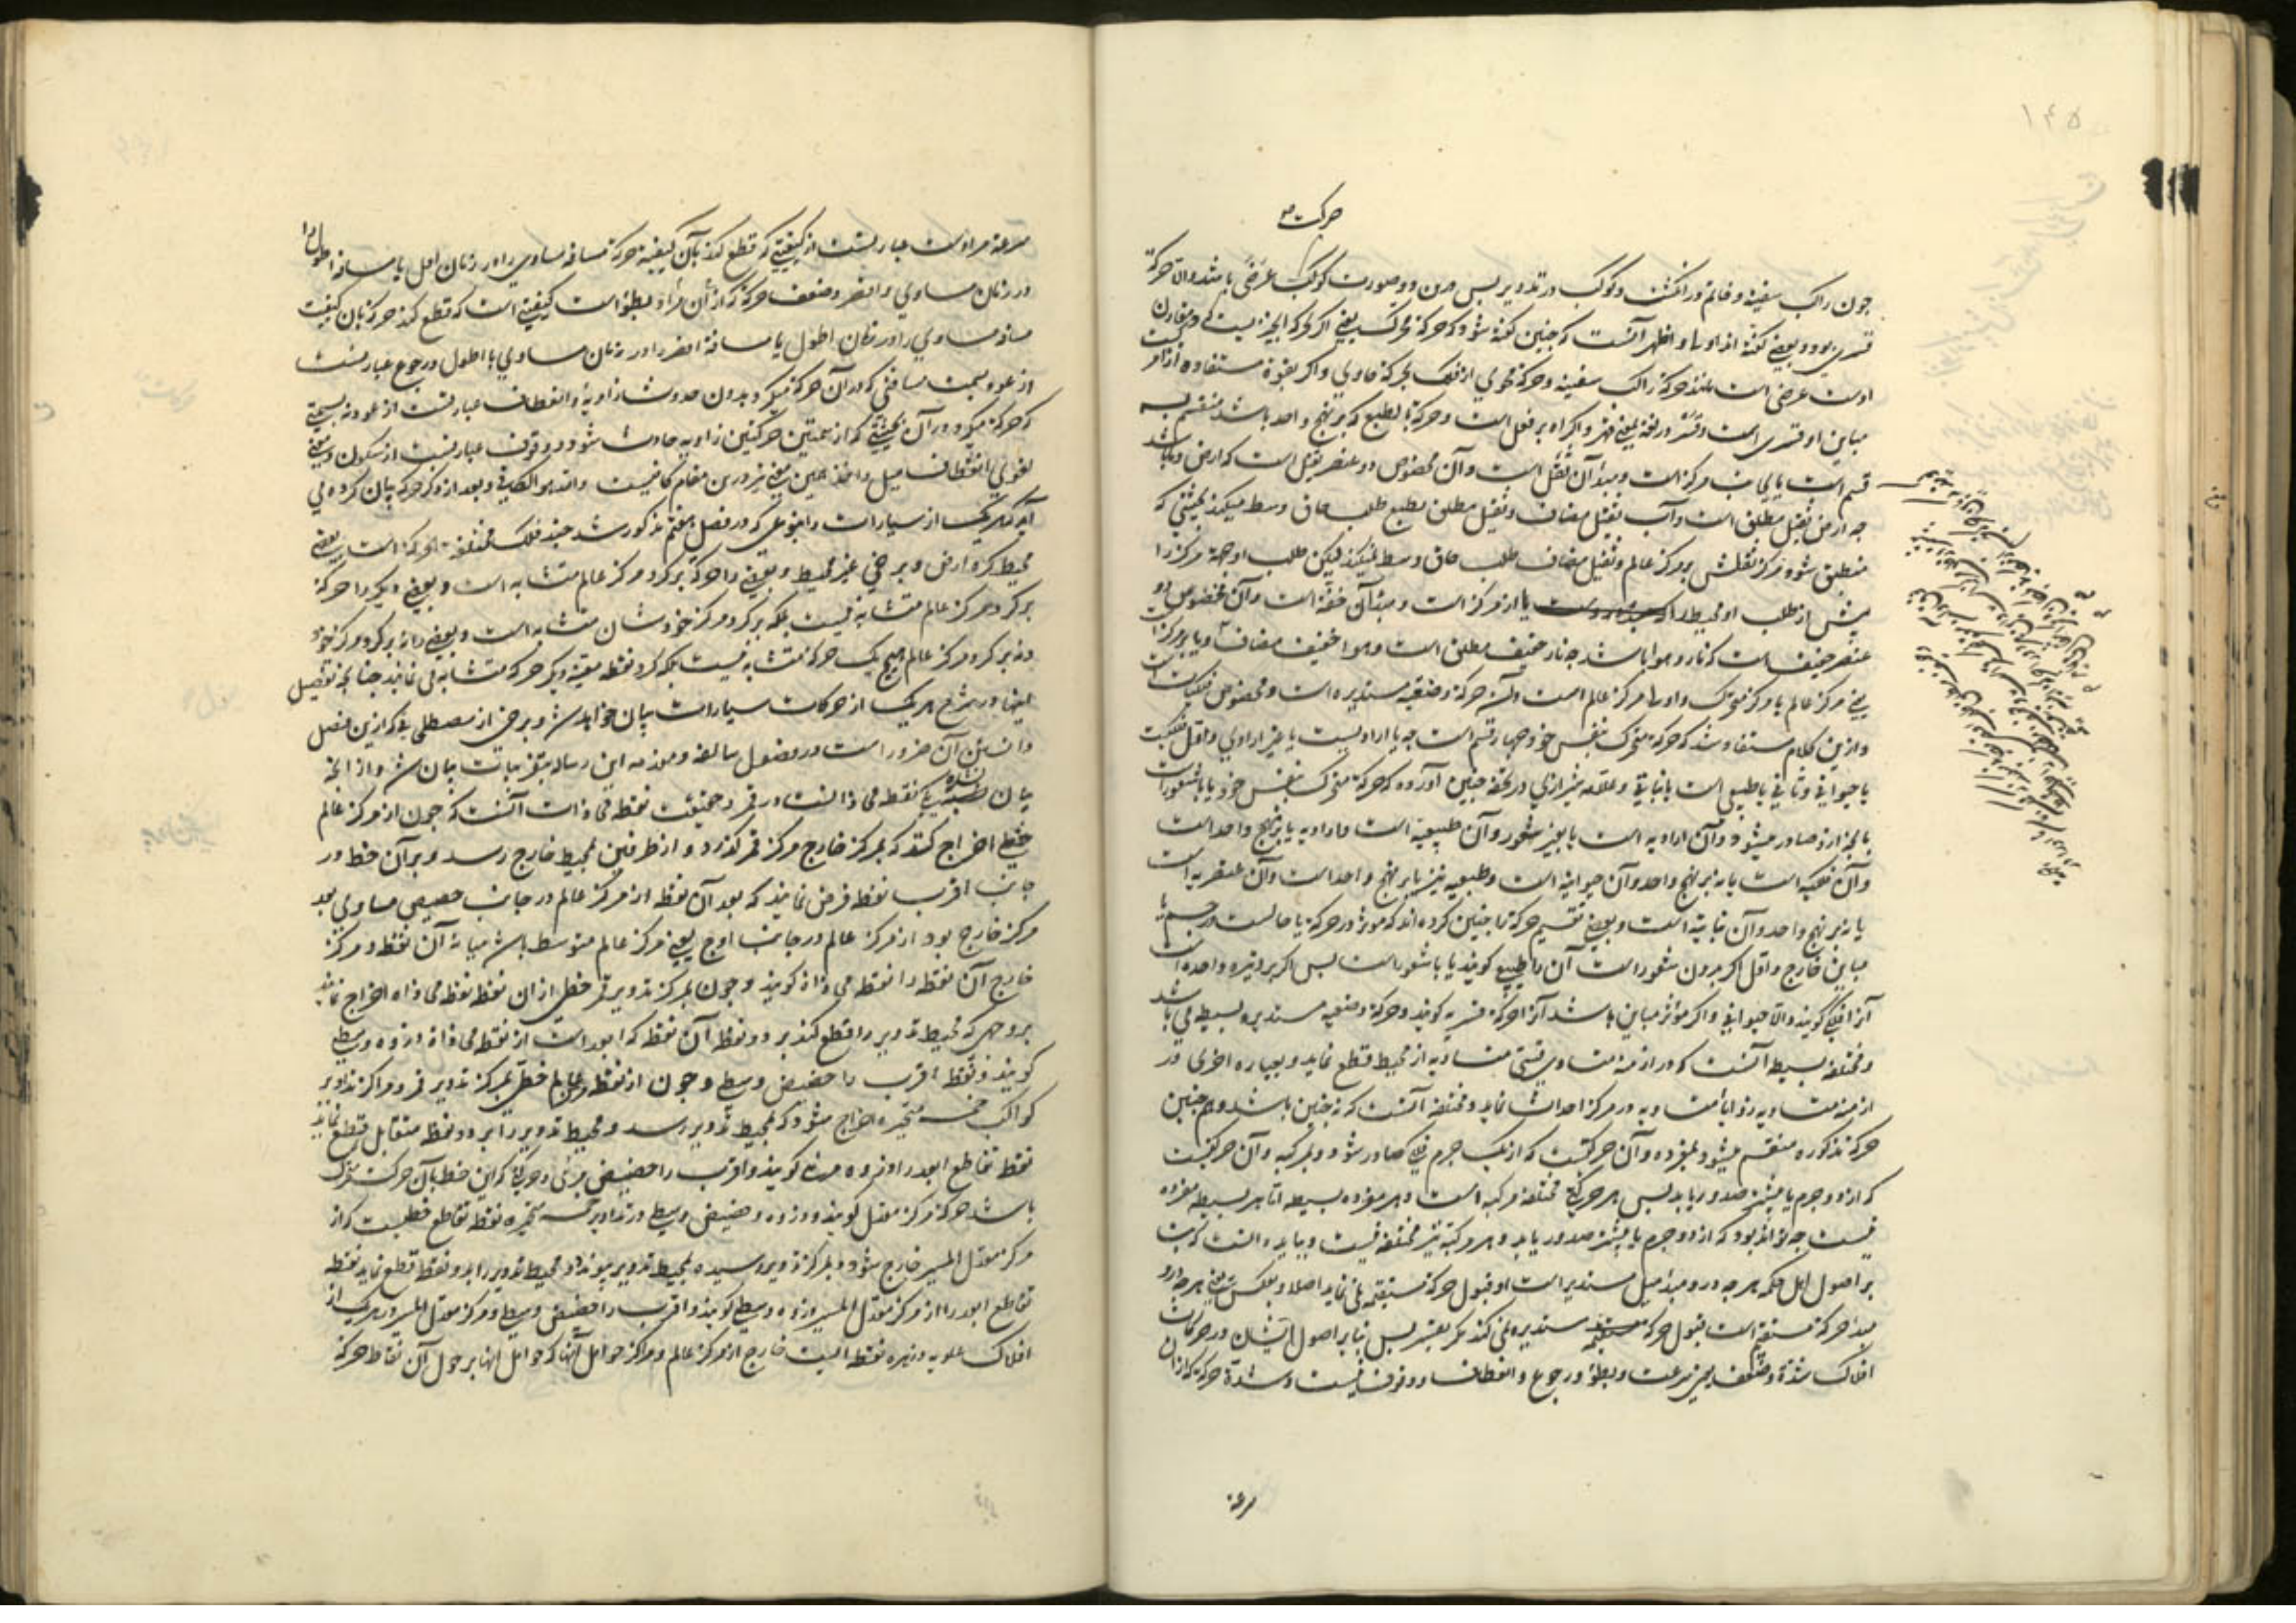 ۱۴۵
حرکت
چون راکب سفینه و خاتم در انکشت و کوکب در تدویر پس درین دو صورت کوکب عرضی باشد والا حرکة
قسری بود و بعضی کفته اند اولی و اظهر آنست که چنین کفته شود که حرکة متحرک یعنی اکر حرکة
اوست عرضی است مانند حرکة راکب سفینه و حرکة محوی از فلک بحرکة حاوی و اکر بقوة مستفاده از امر
مباین او قسری است و قسر در لغة بمعنی قهر و اکراه بر فعل است و حرکة بالطبع که بر نهج واحد باشد منقسم بسه
قسم است یا بجانب مرکز است و مبدأ آن ثقل است و آن مخصوص دو عنصر ثقیل است که ارض و ما باشد
چه ارض ثقیل مطلق است و آب ثقیل مضاف و ثقیل مطلق بطبع طلب حاق وسط میکند بحیثیتی که
منطبق شود مرکز ثقلش بر مرکز عالم و ثقیل مضاف طلب حاق وسط نمیکند لیکن طلب او جهة مرکز را
بیش از طلب او محیط را یا از مرکز است و مبدأ آن خفة است و آن مخصوص دو
عنصر خفیف است که نار و هوا باشد چه نار خفیف مطلق است و هوا خفیف مضاف و یا بر مرکز است
یعنی مرکز عالم یا مرکز متحرک و اورا مرکز عالم است و آن حرکة وضعیه مستدیره است و مخصوص فلکیات است
و ازین کلام مستفاد شد که حرکة متحرک بنفس خود چهار قسم است چه یا ارادیست یا غیر ارادی و اول فلکیست
یا حیوانی و ثانی یا طبیعی است یا نباتی و علامه شیرازی در تحفه چنین آورده که حرکة متحرک بنفس خود یا با شعور است
بانچه ازو صادر میشود و آن ارادیه است یا بغیر شعور و آن طبیعیه است و ارادیه یا بر نهج واحد است
و آن فلکیه است یا نه بر نهج واحد و آن حیوانیه است و طبیعیه نیز یا بر نهج واحد است و آن عنصریه است
یا نه بر نهج واحد و آن نباتیه است و بعضی تقسیم حرکة را چنین کرده اند که موثر در حرکة یا حالست در جسم یا
مباین خارج و اول اکر بدون شعور است آن را طبیعی کویند یا با شعور است پس اکر بر وتیره واحده است
آنرا فلکی کویند والا حیوانی و اکر موثر مباین باشد آنرا حرکة قسریه کویند و حرکة وضعیه مستدیره بسیطه می باشد
و مختلفه بسیطه آنست که در ازمنه متساوی قسی متساویه از محیط قطع نماید و بعباره اخری در
ازمنه متساویه زوایاء متساویه در مرکز احداث نماید و مختلفه آنست که نه چنین باشد و هم چنین
حرکة مذکوره منقسم میشود بمفرده و آن حرکتیست که از یک جرم فلکی صادر شود و بمرکبه و آن حرکتیست
که از دو جرم یا بیشتر صدور یابد پس هر حرکة مختلفه مرکبه است و هر مفرده بسیطه اما هر بسیطه مفرده
نیست چه تواند بود که از دو جرم یا بیشتر صدور یابد و هر مرکبه نیز مختلفه نیست و بباید دانست که بنا
بر اصول اهل حکمه هر چه درو مبدأ میل مستدیر است او قبول حرکة مستقیمه نمی نماید اصلا و بعکس یعنی هر چه درو
مبدأ حرکة مستقیم است قبول حرکة مستدیره نمی کند مکر بقسر پس بنا بر اصول ایشان در حرکات
افلاک شدة و ضعف یعنی سرعت و بطؤ و رجوع و انعطاف و وقوف نیست و شدة حرکة که از ان
سرعة
سرعة مراد است عبارتست از کیفیتی که قطع کند بآن کیفیة حرکة مسافة مساوی را در زمان اقل یا مسافة اطول را
در زمان مساوی و اقصر و ضعف حرکة که از آن مراد بطؤ است کیفیتی است که قطع کند حرکة بان کیفیت
مسافة مساوی را در زمان اطول یا مسافة اقصر را در زمان مساوی یا اطول و رجوع عبارتست
از عود بسمت مسافتی که در آن حرکة میکرد بدون حدوث زاویة و انعطاف عبارتست از عود نه بسمتی
که حرکة میکرد در آن بحیثیتی که از سمتین حرکتین زاویه حادث شود و وقوف عبارتست از سکون و معنی
لغوی انعطاف میل و اخذ همین معنی نیز درین مقام کافیست والله هو الکافی و بعد از ذکر حرکة بیان کرده می
آید که هر یک از سیارات را بنوعی که در فصل هفتم مذکور شد چند فلک مختلفة الحرکة است بعضی
محیط کره ارض و برخی غیر محیط و بعضی را حرکة بر کرد مرکز عالم متشابه است و بعضی دیکر را حرکة
بر کرد مرکز عالم متشابه نیست بلکه بر کرد مرکز خودشان متشابه است و بعضی را نه بر کرد مرکز خود
و نه بر کرد مرکز عالم هیچ یک حرکة متشابه نیست بلکه کرد نقطه معینه دیکر حرکه متشابه می نمایند چنانچه تفصیل
اینها در شرح هر یک از حرکات سیارات بیان خواهد شد و برخی از مصطلحی که ازین فصل
دانستن آن ضرور است در فصول سالفه و مقدمه این رساله بتقریبات بیان شد و از آنجمله
بیان نشده یکی نقطه محاذاتست در قمر و حقیقت نقطه محاذات آنست که چون از مرکز عالم
خطی اخراج کنند که بمرکز خارج مرکز قمر کذرد و از طرفین بمحیط خارج رسد و بر آن خط در
جانب اقرب نقطه فرض نمایند که بعد آن نقطه از مرکز عالم در جانب حضیض مساوی بعد
مرکز خارج بود از مرکز عالم در جانب اوج یعنی مرکز عالم متوسط باشد میانه آن نقطه و مرکز
خارج آن نقطه را نقطه محاذاة کویند و چون بمرکز تدویر قمر خطی از ان نقطه نقطه محاذاه اخراج نمایند
بر وجهی که محیط تدویر را قطع کند بر دو نقطه آن نقطه که ابعد است از نقطه محاذاة ذروه وسطی
کویند و نقطه اقرب را حضیض وسطی و چون از نقطه مرکز عالم خطی بمرکز تدویر قمر و مراکز تداویر
کواکب خمسه متحیره اخراج شود که بمحیط تدویر رسد و محیط تدویر را بر دو نقطه متقابل قطع نماید
نقطه تقاطع ابعد را ذروه مرئی کویند و اقرب را حضیض مرئی و حرکتی که این خط بآن حرکت متحرک
باشد حرکة مرکز معدل کویند و ذروه و حضیض وسطی در تداویر خمسه متحیره نقطه تقاطع خطیست که از
مرکز معدل المسیر خارج شود و بمرکز تدویر رسیده بمحیط تدویر پیوندد و محیط تدویر را بدو نقطه قطع نماید نقطه
تقاطع ابعد را از مرکز معدل المسیر ذروه وسطی کویند و اقرب را حضیض وسطی و مرکز معدل المسیر در هر یک از
افلاک علویه و زهره نقطه ایست خارج از مرکز عالم و مرکز حوامل آنها که حوامل آنها بر حول آن نقاط حرکة